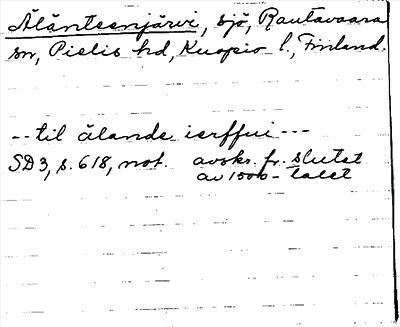 Älänteenjärvi, sjö, Rautavaara
sn, Pielis hd, Kuopio l., Finland.
-- til älände ierffui ---
SD 3, s. 618, not. avskr. fr. slutet
av 1500-talet